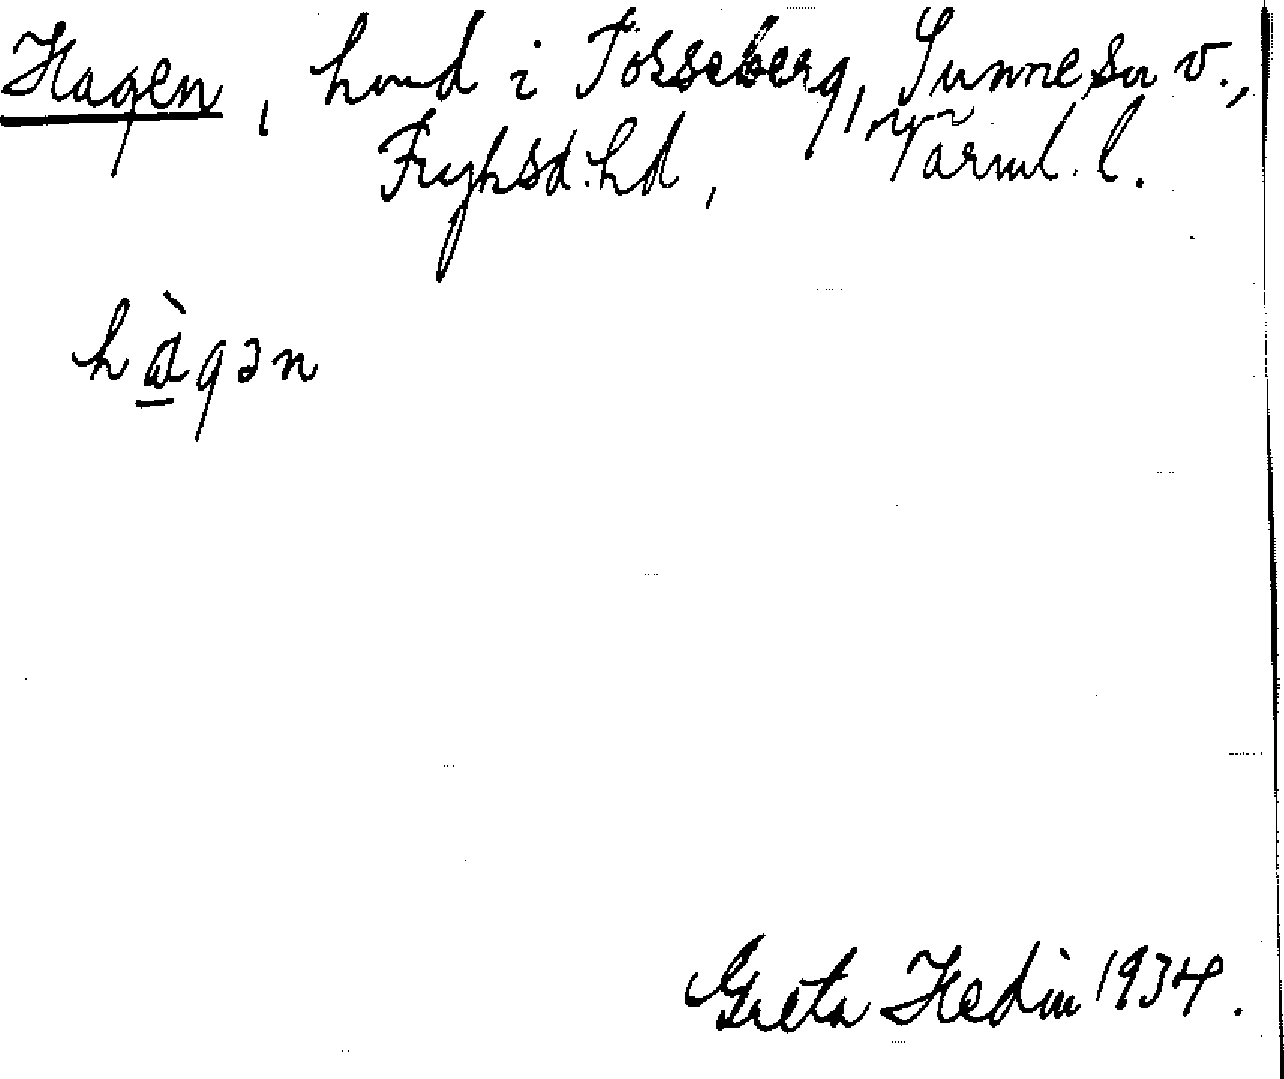 Hagen, hmd i Torseberg, Sunne sn v.,
Fryksd. hd, Värml. l.
hàgən
Greta Hedin 1934.